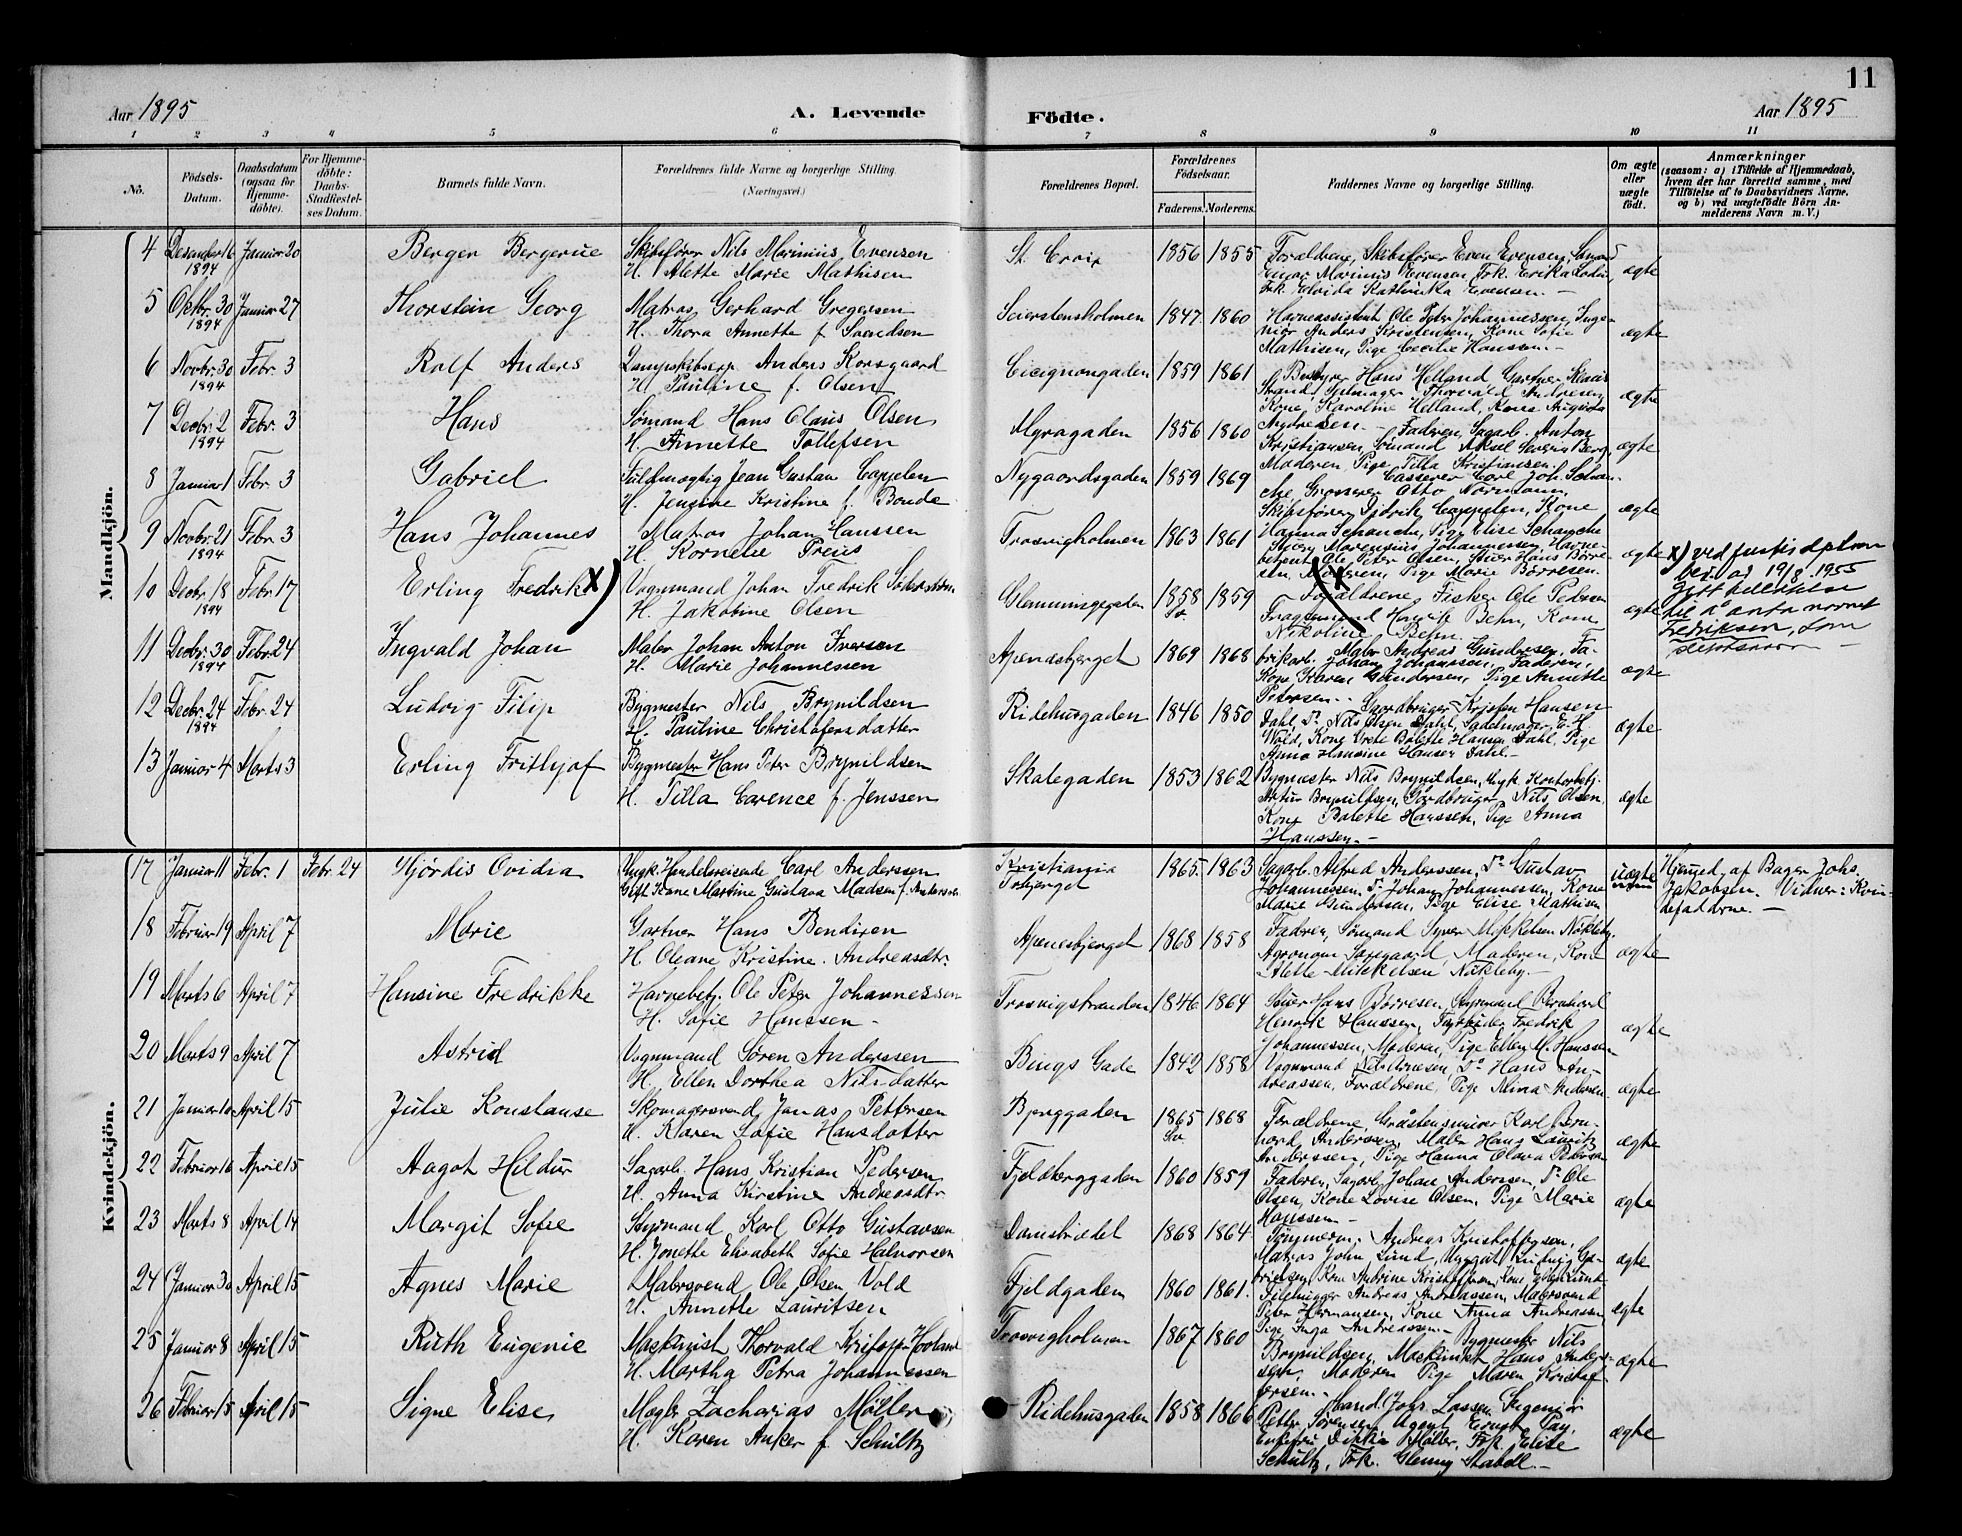 11
Aar 1895
A. Levende Födte.
Aar 1895
1 2 3 4 5 6 7 8 9 10 11
No.
Födsels-Datum.
Daabsdatum (ogsaa for Hjemme-döbte).
For Hjemme-döbte: Daabs-Stadfæstel-ses Datum.
Barnets fulde Navn.
Forældrenes fulde Navne og borgerlige Stilling. (Næringsvei.)
Forældrenes Bopæl.
Forældrenes Födselsaar.
Faderens. Moderens.
Faddernes Navne og borgerlige Stilling.
Om ægte eller uægte födt.
Anmærkninger
(saasom: a) i Tilfælde af Hjemmedaab, hvem der har forrettet samme, med Tilföielse af to Daabsvidners Navne, og b) ved uægtefödte Börn An-melderens Navn m. V.)
Mandkjön.
4 Desember 16 1894 Januar 20 Berger Bergerue Skibsförer Nils Marinius Evensen
H. Alette Marie Mathisen
St. Croix 1856 1855 Forældrene, Skibsförer Even Evensen, Sömand
Einar Marinius Evensen, Frk. Erika
Frk. Elvida Kathinka Evensen.- ægte
5 Oktbr. 30 1894 Januar 27 Thorstein Georg Matros Gerhard Gregersen
H. Thora Annette f. Svendsen
Seierstensholmen 1847 1860 Havneassistent Ole Peter Johannessen, Inge-
niör Anders Kristensen, Kone Sofie
Mathisen, Pige Cecilie Hanssen.- ægte
6 Novbr. 30 1894 Febr. 3 Rolf Anders Anders Korsgaard
H. Pauline f. Olsen
Cicignongaden 1859 1861 Bestyrer Hans Helland, Gartner
Strand, Thorvald Andresen
Kone Karoline Helland, Kone Augusta
Andresen.- ægte
7 Decbr. 2 1894 Febr. 3 Hans Sömand Hans Olaus Olsen
H. Annette Tollefsen
Myragaden 1856 1860 Faderen, Sagarb. Anton
Kristiansen, Sömand Berg
Moderen, Pige Tilla Kristiansen. ægte
8 Januar 1 Febr. 3 Gabriel Fuldmægtig Jean Gustav Cappelen
H. Jensine Kristine f. Bonde
Nygaardsgaden 1859 1869 Casserer Carl Joh. Schan-
che, Grosserer Otto Normann,
Skibsförer Didrik Cappelen, Kone
Hanna Schanche, Pige Elise Schanche ægte
9 Novbr. 21 1894 Febr. 3 Hans Johannes Matros Johan Hanssen
H. Kornelie Preus
Trosvigholmen 1863 1861 Johannessen, Havne-
betjent Ole Peter Olsen, Stuer Hans Börre-
sen, Moderen, Pige Marie Börresen. ægte
10 Decbr. 18 1894 Febr. 17 Erling Fredrik x) Vognmand Johan Fredrik
H. Jakobine Olsen
Glemmingegaden 1858 Sv. 1859 Forældrene, Fisker Ole Pedersen
Fragtemand Henrik Behn, Kone
Nikoline Behn. ægte
x) ved justisdptem.
bev. av 19/8 1955
gitt tillatelse
til å anta navnet
Fredriksen, som
slektsnavn -
11 Decbr. 30 1894 Febr. 24 Ingvald Johan Maler Johan Anton Iversen
H. Marie Johannessen
Apenesbjerget 1869 1868 Maler Andreas Gundersen, Fa-
brikarb. Johan Johanssen, Faderen,
Kone Karen Gundersen, Pige Annette
Petersen.- ægte
12 Decbr. 24 1894 Febr. 24 Ludvig Filip Bygmester Nils Brynildsen
H. Pauline Christofersdatter
Ridehusgaden 1846 1850 Gaardbruger Kristen Hansen
Dahl, Do Nils Olsen Dahl, Sadelmager E. H.
Wold, Kone Grete Bolette Hansen Dahl, Pige
Anna Hansine Hansen Dahl.- ægte
13 Januar 4 Marts 3 Erling Frithjof Bygmester Hans Peter Brynildsen
H. Tilla Carence f. Jenssen
Skalegaden 1853 1862 Bygmester Nils Brynildsen, Ungk. Kontorbetj.
Artur Brynildsen, Gårdbruger Nils Olsen,
Kone Bolette Hanssen, Pige Anna
Hanssen.- ægte
Kvindekjön.
17 Januar 11 Febr. 1 Febr. 24 Hjördis Ovidia Ungk. Handelsreisende Carl Anderssen
Gift Kone Martine Gustava Madsen f. Anderssen
Kristiania
Torbjerget
1865 1863 Sagarb. Alfred Anderssen, Do Gustav
Johannessen, Do Johan Johannessen, Kone
Marie Gundersen, Pige Elise Mathisen uægte
Hjemmed. af Bager Johs.
Jakobsen. Vidner: Kvin-
defadderne. -
18 Februar 19 April 7 Marie Gartner Hans Bendixen
H. Oleane Kristine Andreasdtr.
Apenesbjerget 1868 1858 Faderen, Sömand Syver Mikkelsen Nökleby,
Agronom Moderen, Kone
Alette Mikkelsen Nökleby.- ægte
19 Marts 6 April 7 Hansine Fredrikke Havnebetj. Ole Peter Johannessen
H. Sofie Hanssen -
Trosvigstranden 1846 1864 Stuer Hans Börresen, Styrmand Bernhard
Henrik Hanssen, Fredrik
Johannessen, Moderen, Pige Ellen M. Hanssen ægte
20 Marts 9 April 7 Astrid Vognmand Sören Anderssen
H. Ellen Dorthea Nilsdatter
Bings Gade 1842 1858 Vognmand Nils Arnesen, Do Hans An-
dreassen, Forældrene, Pige Alma Andersen ægte
21 Januar 10 April 15 Julie Konstanse Skomagersvend Jonas Pettersen
H. Karen Sofie Hansdatter
Bjerggaden 1865 Sv. 1868 Forældrene, Gråstensminör Karl Bern-
hard Anderssen, Maler Hans Lauritz
Anderssen, Pige Hanna Olava Pedersen ægte
22 Februar 16 April 15 Aagot Hildur Sagarb. Hans Kristian Pedersen
H. Anna Kirstine Andreasdtr.
Fjeldberggaden 1860 1859 Faderen, Sagarb. Johan Anderssen, Do Ole
Olsen, Kone Lovise Olsen, Pige Marie
Hanssen.- ægte
23 Marts 8 April 14 Margit Sofie Styrmand Karl Otto Gustavsen
H. Jonette Elisabeth Sofie Halvorsen
Damstrædet 1868 1864 Tömmerm. Andreas Kristoffersen,
Matros John Lund, Ludvig Ga-
brielsen, Kone Andrine Kristoffersen, Kone Lund ægte
24 Januar 30 April 15 Agnes Marie Malersvend Ole Olsen Vold
H. Annette Lauritsen
Fjeldgaden 1860 1861. Filehugger Andreas Andreassen, Malersvend
Peter Hermansen, Kone Anna Andreassen
Pige Inga Andreassen.- ægte
25 Januar 8 April 15 Ruth Eugenie Maskinist Thorvald Kristoffer Hovland
H. Martha Petra Johannessen
Trosvigholmen 1867 1860 Bygmester Nils
Brynildsen, Maskinist Hans Anders-
sen, Moderen, Pige Maren Kristof-
fersen.- ægte
26 Februar 15 April 15 Signe Elise Mægler Zacharias Möller
H. Karen Anker f. Schultz
Ridehusgaden 1858 1866 Johs. Lassen, Ingeniör
Petter Sörensen, Agent Ernst Pay,
Enkefru Dikka Möller, Frk. Elise
Schultz, Frk. Glenny Stabell.- ægte